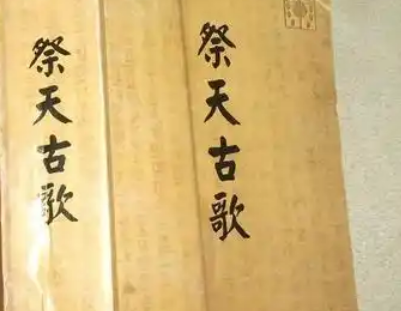 祭天古歌
祭天古歌